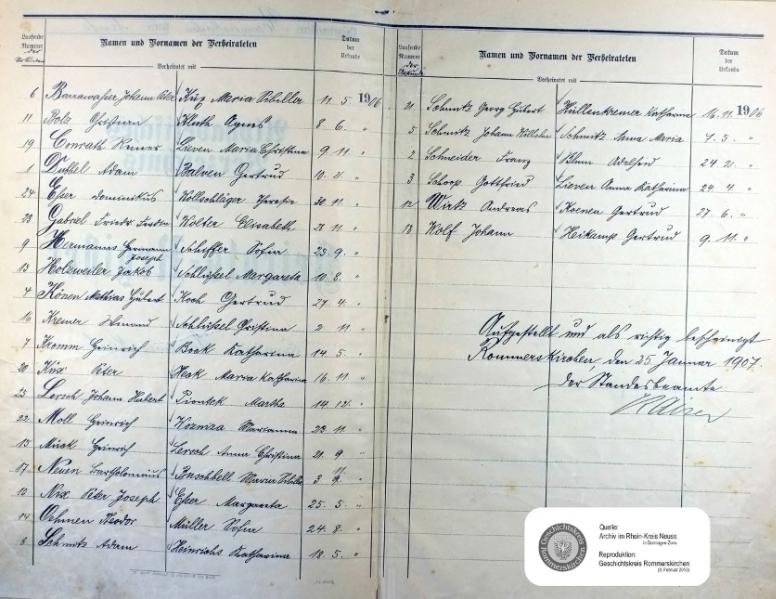 Laufende Nummer der Urkunde
Namen und Vornamen der Verheirateten
Datum der Urkunde
Verheiratet mit
6 Johann Peter Küx Maria Sibilla 11. 5. 1906
11 Bolz Christian Kluth Agnes 8. 6. "
19 Conrath Reiner Lieven Maria Christina 9. 11 "
1 Dübbel Adam Balven Gertrud "
24 Eßer Dominikus Kollschläger Therese 30 11 "
23 Gabriel Friedr. Kolter Elisabeth 21 11 "
9 Hermanns Hermann Joseph Schiffer Sofia 23. 9. "
13 Holzweiler Jakob Schlüßel Margareta 10. 8. "
4 Könen Mathias Hubert Koch Gertrud 27. 4. "
16 Kremer Schlüßel Christina 2 11 "
7 Kromm Heinrich Bock Katharina 14. 5. "
20 Küx Peter Heck Maria Katharina 16. 11. "
25 Lersch Johann Hubert Piontek Martha 14. 12. "
22 Moll Heinrich Marianna 23 11 "
15 Heinrich Lersch Anna Christina 21. 9. "
17 Neuen Bartholomäus Buschbell Maria Sibilla 3 "
10 Nix Peter Joseph Eßer Margareta 25. 5. "
14 Oehmen Theodor Müller Sofia 24. 8. "
8 Schmitz Adam Heinrichs Katharina 18. 5. "
Laufende Nummer der Urkunde
Namen und Vornamen der Verheirateten
Datum der Urkunde
Verheiratet mit
21 Schmitz Georg Hubert Hüllenkremer Katharina 16. 11 1906
5 Schmitz Johann Wilhelm Schmitz Anna Maria 7. 5. "
2 Schneider Franz Blum Adelheid 24 2. "
3 Schoop Gottfried Lieven Anna Katharina 24. 4. "
12 Wirtz Andreas Koenen Gertrud 27. 6. "
18 Wolf Johann Heikamp Gertrud 9. 11. "
Aufgestellt und als richtig bescheinigt
Rommerskirchen, den 25 Januar 1907.
Der Standesbeamte
Geschichtskreis Rommerskirchen
Quelle:
Archiv im Rhein-Kreis Neuss
in Dormagen Zons
Reproduktion:
Geschichtskreis Rommerskirchen